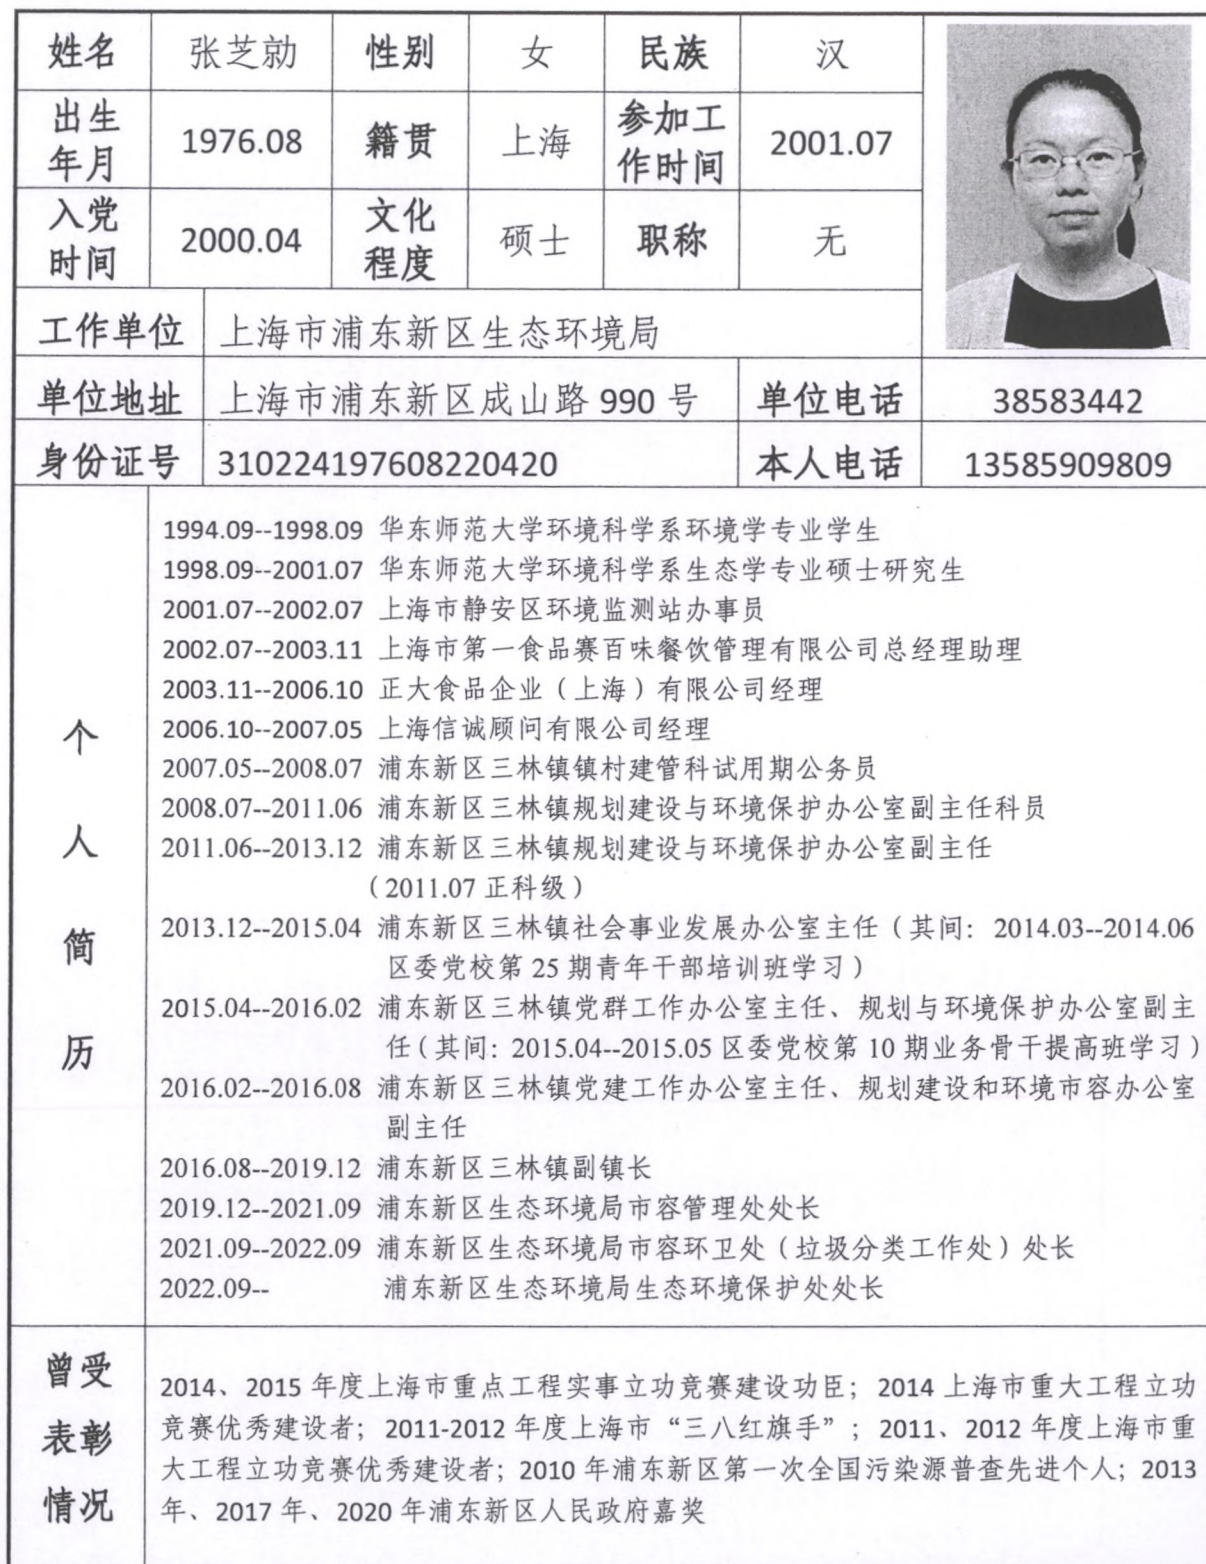 姓名 张芝勍 性别 女 民族 汉
出生年月 1976.08 籍贯 上海 参加工作时间 2001.07
入党时间 2000.04 文化程度 硕士 职称 无
工作单位 上海市浦东新区生态环境局
单位地址 上海市浦东新区成山路 990 号 单位电话 38583442
身份证号 310224197608220420 本人电话 13585909809
个人简历
1994.09--1998.09 华东师范大学环境科学系环境学专业学生
1998.09--2001.07 华东师范大学环境科学系生态学专业硕士研究生
2001.07--2002.07 上海市静安区环境监测站办事员
2002.07--2003.11 上海市第一食品赛百味餐饮管理有限公司总经理助理
2003.11--2006.10 正大食品企业（上海）有限公司经理
2006.10--2007.05 上海信诚顾问有限公司经理
2007.05--2008.07 浦东新区三林镇镇村建管科试用期公务员
2008.07--2011.06 浦东新区三林镇规划建设与环境保护办公室副主任科员
2011.06--2013.12 浦东新区三林镇规划建设与环境保护办公室副主任
（2011.07 正科级）
2013.12--2015.04 浦东新区三林镇社会事业发展办公室主任（其间：2014.03--2014.06
区委党校第 25 期青年干部培训班学习）
2015.04--2016.02 浦东新区三林镇党群工作办公室主任、规划与环境保护办公室副主
任（其间：2015.04--2015.05 区委党校第 10 期业务骨干提高班学习）
2016.02--2016.08 浦东新区三林镇党建工作办公室主任、规划建设和环境市容办公室
副主任
2016.08--2019.12 浦东新区三林镇副镇长
2019.12--2021.09 浦东新区生态环境局市容管理处处长
2021.09--2022.09 浦东新区生态环境局市容环卫处（垃圾分类工作处）处长
2022.09-- 浦东新区生态环境局生态环境保护处处长
曾受表彰情况
2014、2015 年度上海市重点工程实事立功竞赛建设功臣；2014 上海市重大工程立功
竞赛优秀建设者；2011-2012 年度上海市“三八红旗手”；2011、2012 年度上海市重
大工程立功竞赛优秀建设者；2010 年浦东新区第一次全国污染源普查先进个人；2013
年、2017 年、2020 年浦东新区人民政府嘉奖